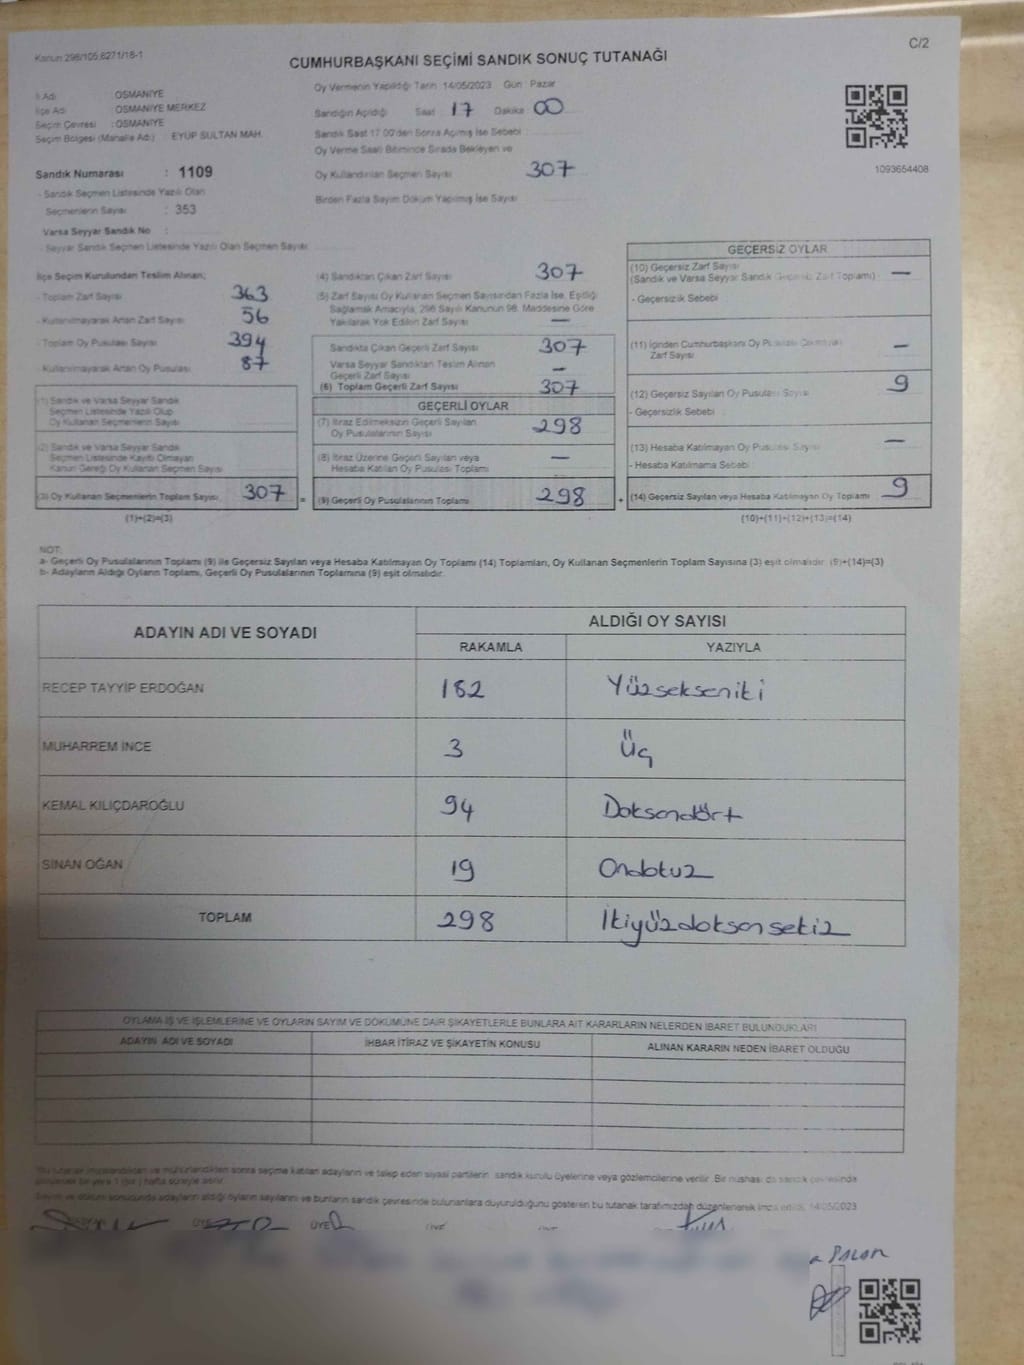 Kanun 298/105;6271/18-1
C/2
CUMHURBAŞKANI SEÇİMİ SANDIK SONUÇ TUTANAĞI
İl Adı OSMANİYE
İlçe Adı OSMANİYE MERKEZ
Seçim Çevresi : OSMANİYE
Seçim Bölgesi (Mahalle Adı) : EYÜP SULTAN MAH.
Sandık Numarası : 1109
- Sandık Seçmen Listesinde Yazılı Olan
Seçmenlerin Sayısı : 353
Varsa Seyyar Sandık No :
- Seyyar Sandık Seçmen Listesinde Yazılı Olan Seçmen Sayısı
Oy Vermenin Yapıldığı Tarih 14/05/2023 Gün : Pazar
Sandığın Açıldığı Saat 17 Dakika 00
Sandık Saat 17.00'den Sonra Açılmış İse Sebebi
Oy Verme Saati Bitiminde Sırada Bekleyen ve
Oy Kullandırılan Seçmen Sayısı 307
Birden Fazla Sayım Döküm Yapılmış İse Sayısı
1093654408
İlçe Seçim Kurulundan Teslim Alınan;
- Toplam Zarf Sayısı 363
- Kullanılmayarak Artan Zarf Sayısı 56
- Toplam Oy Pusulası Sayısı 394
- Kullanılmayarak Artan Oy Pusulası 87
(1) Sandık ve Varsa Seyyar Sandık
Seçmen Listesinde Yazılı Olup
Oy Kullanan Seçmenlerin Sayısı
(2) Sandık ve Varsa Seyyar Sandık
Seçmen Listesinde Kayıtlı Olmayan
Kanun Gereği Oy Kullanan Seçmen Sayısı
(3) Oy Kullanan Seçmenlerin Toplam Sayısı 307 =
(1)+(2)=(3)
(4) Sandıktan Çıkan Zarf Sayısı 307
(5) Zarf Sayısı Oy Kullanan Seçmen Sayısından Fazla İse, Eşitliği
Sağlamak Amacıyla, 298 Sayılı Kanunun 98. Maddesine Göre
Yakılarak Yok Edilen Zarf Sayısı —
Sandıkta Çıkan Geçerli Zarf Sayısı 307
Varsa Seyyar Sandıktan Teslim Alınan
Geçerli Zarf Sayısı —
(6) Toplam Geçerli Zarf Sayısı 307
GEÇERLİ OYLAR
(7) İtiraz Edilmeksizin Geçerli Sayılan
Oy Pusulalarının Sayısı 298
(8) İtiraz Üzerine Geçerli Sayılan veya
Hesaba Katılan Oy Pusulası Toplamı —
(9) Geçerli Oy Pusulalarının Toplamı 298 +
GEÇERSİZ OYLAR
(10) Geçersiz Zarf Sayısı
(Sandık ve Varsa Seyyar Sandık Geçersiz Zarf Toplamı) —
- Geçersizlik Sebebi
(11) İçinden Cumhurbaşkanı Oy Pusulası Çıkmayan
Zarf Sayısı —
(12) Geçersiz Sayılan Oy Pusulası Sayısı 9
- Geçersizlik Sebebi
(13) Hesaba Katılmayan Oy Pusulası Sayısı —
- Hesaba Katılmama Sebebi
(14) Geçersiz Sayılan veya Hesaba Katılmayan Oy Toplamı 9
(10)+(11)+(12)+(13)=(14)
NOT:
a- Geçerli Oy Pusulalarının Toplamı (9) ile Geçersiz Sayılan veya Hesaba Katılmayan Oy Toplamı (14) Toplamları, Oy Kullanan Seçmenlerin Toplam Sayısına (3) eşit olmalıdır. (9)+(14)=(3)
b- Adayların Aldığı Oyların Toplamı, Geçerli Oy Pusulalarının Toplamına (9) eşit olmalıdır.
ADAYIN ADI VE SOYADI
ALDIĞI OY SAYISI
RAKAMLA YAZIYLA
RECEP TAYYİP ERDOĞAN 182 Yüzsekseniki
MUHARREM İNCE 3 Üç
KEMAL KILIÇDAROĞLU 94 Doksandört
SİNAN OĞAN 19 Ondokuz
TOPLAM 298 İkiyüzdoksansekiz
OYLAMA İŞ VE İŞLEMLERİNE VE OYLARIN SAYIM VE DÖKÜMÜNE DAİR ŞİKAYETLERLE BUNLARA AİT KARARLARIN NELERDEN İBARET BULUNDUKLARI
ADAYIN ADI VE SOYADI İHBAR İTİRAZ VE ŞİKAYETİN KONUSU ALINAN KARARIN NEDEN İBARET OLDUĞU
Bu tutanak imzalandıktan ve mühürlendikten sonra seçime katılan adayların ve talep eden siyasi partilerin, sandık kurulu üyelerine veya gözlemcilerine verilir. Bir nüshası da sandık çevresinde
Sayım ve döküm sonucunda adayların aldığı oyların sayılarını ve bunların sandık çevresinde bulunanlara duyurulduğunu gösteren bu tutanak tarafımızdan düzenlenerek imza edildi. 14/05/2023
ÜYE ÜYE ÜYE ÜYE